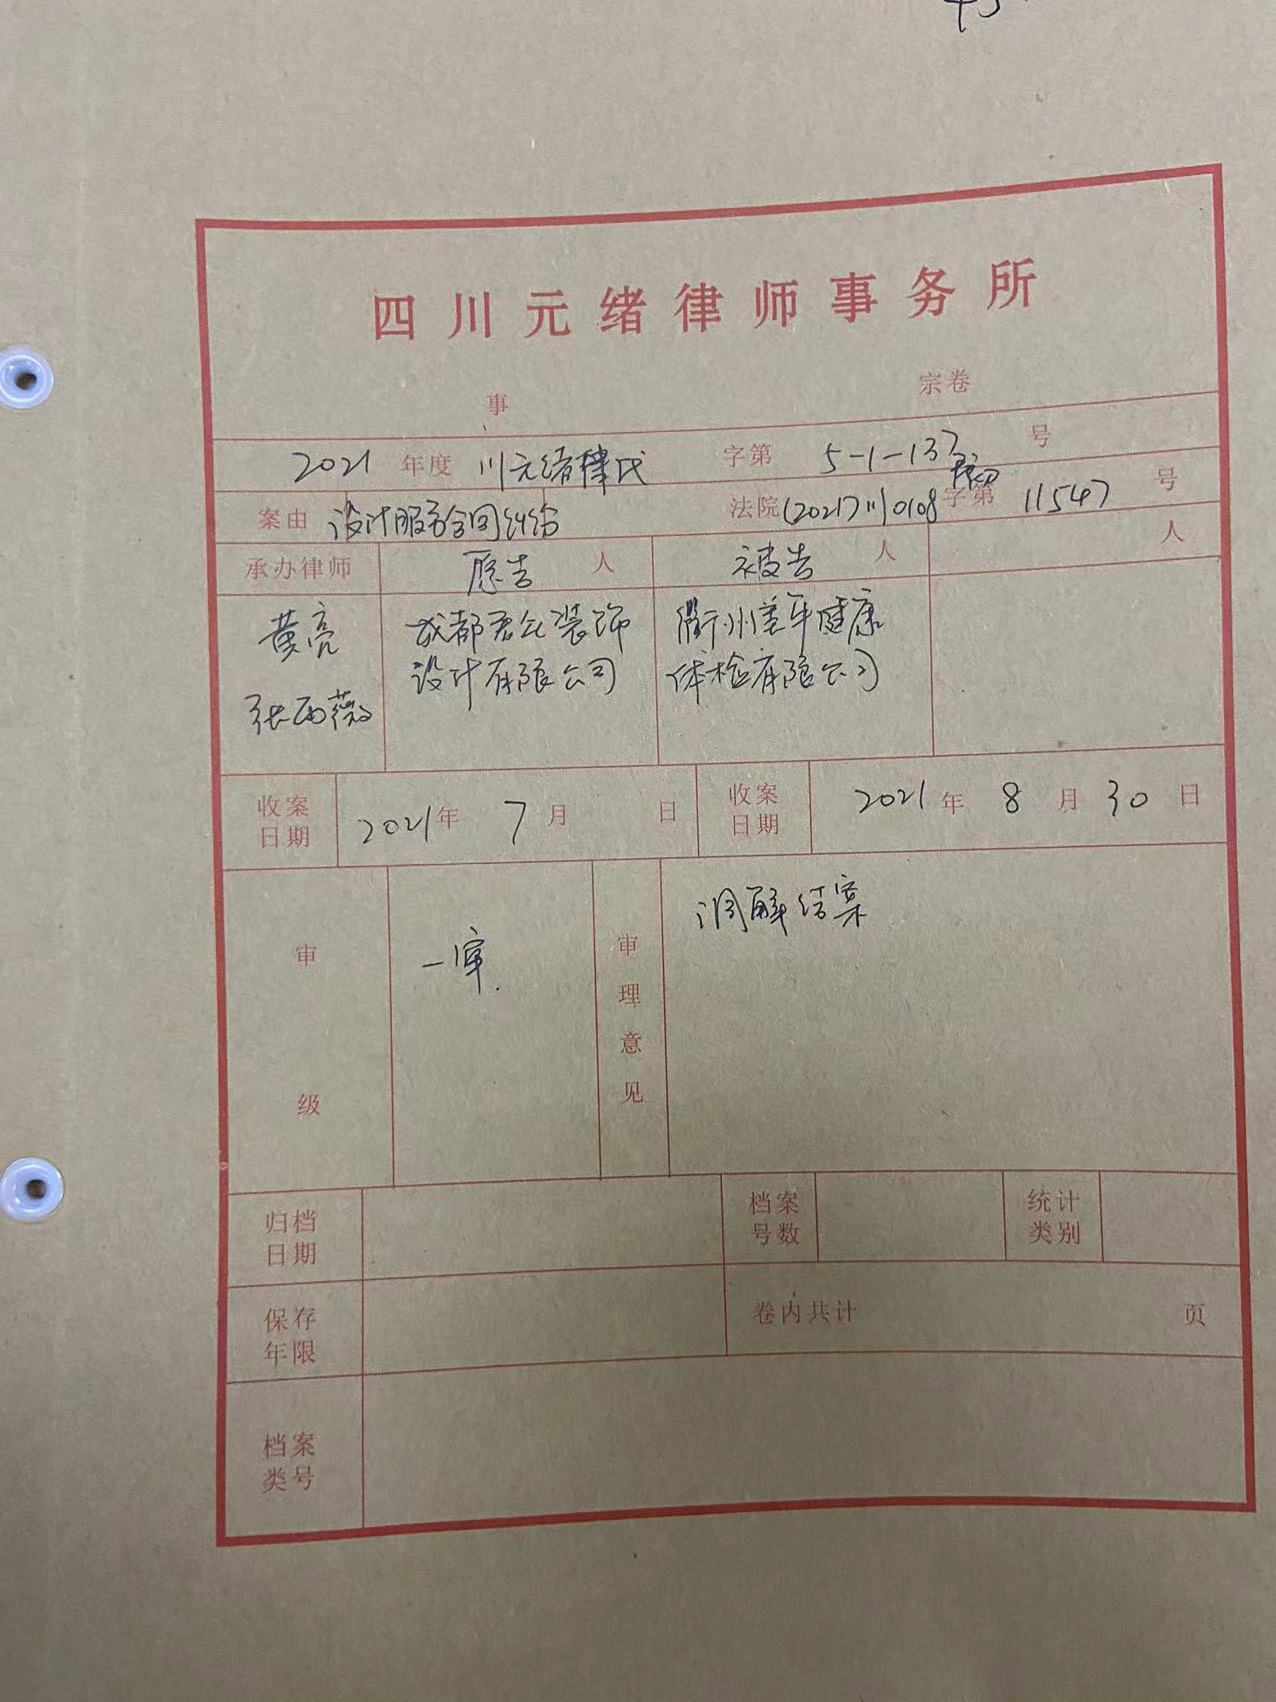 四川元绪律师事务所
事 宗卷
2021 年度 川元绪律民 字第 5-1-137 号
案由 设计服务合同纠纷 法院 (2021)川0108 民初 字第 11547 号
承办律师 原告 人 被告 人 人
黄亮 成都君以装饰 衢州美年健康
张雨薇 设计有限公司 体检有限公司
收案 2021年 7月 日 收案 2021年 8月30日
日期 日期
审级 一审. 审理意见 调解结案
归档 档案 统计
日期 号数 类别
保存 卷内共计 页
年限
档案
类号